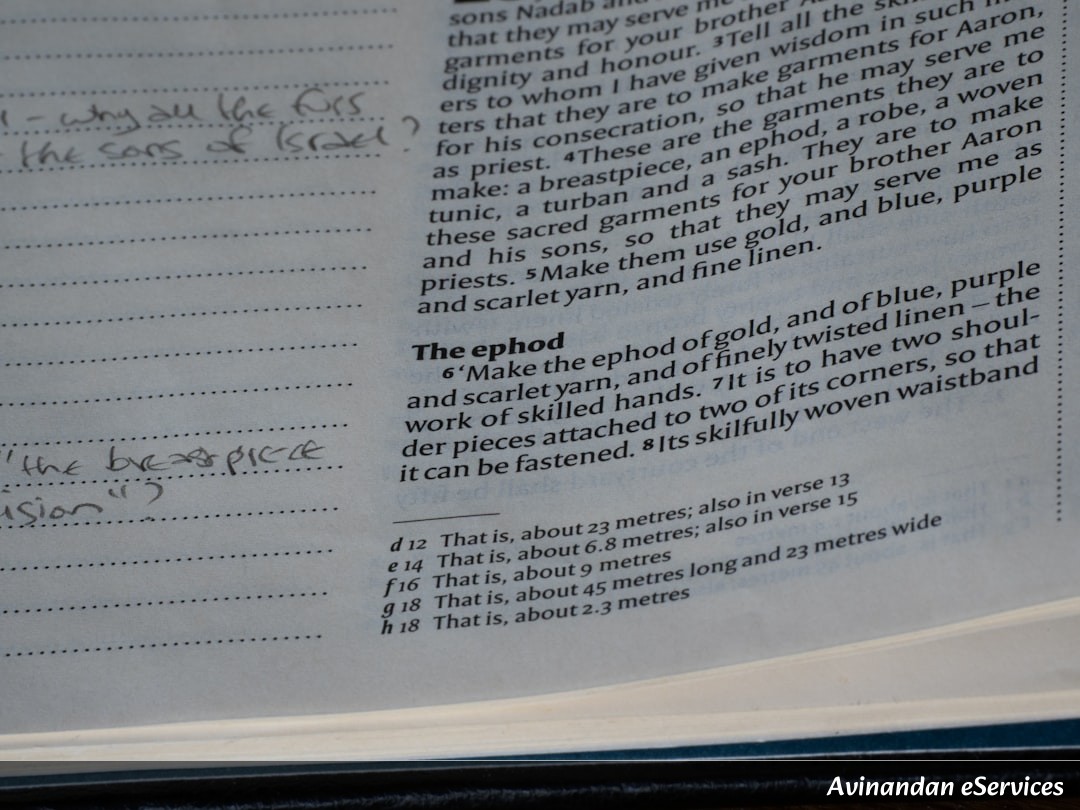 - why all the fuss
the sons of Israel?
"the breastpiece
sons Nadab and
that they may serve me
garments for your brother
dignity and honour. 3Tell all the
ers to whom I have given wisdom in such
ters that they are to make garments for Aaron,
for his consecration, so that he may serve me
as priest. 4These are the garments they are to
make: a breastpiece, an ephod, a robe, a woven
tunic, a turban and a sash. They are to make
these sacred garments for your brother Aaron
and his sons, so that they may serve me as
priests. 5Make them use gold, and blue, purple
and scarlet yarn, and fine linen.
The ephod
6‘Make the ephod of gold, and of blue, purple
and scarlet yarn, and of finely twisted linen – the
work of skilled hands. 7It is to have two shoul-
der pieces attached to two of its corners, so that
it can be fastened. 8Its skilfully woven waistband
d 12 That is, about 23 metres; also in verse 13
e 14 That is, about 6.8 metres; also in verse 15
f 16 That is, about 9 metres
g 18 That is, about 45 metres long and 23 metres wide
h 18 That is, about 2.3 metres
Avinandan eServices